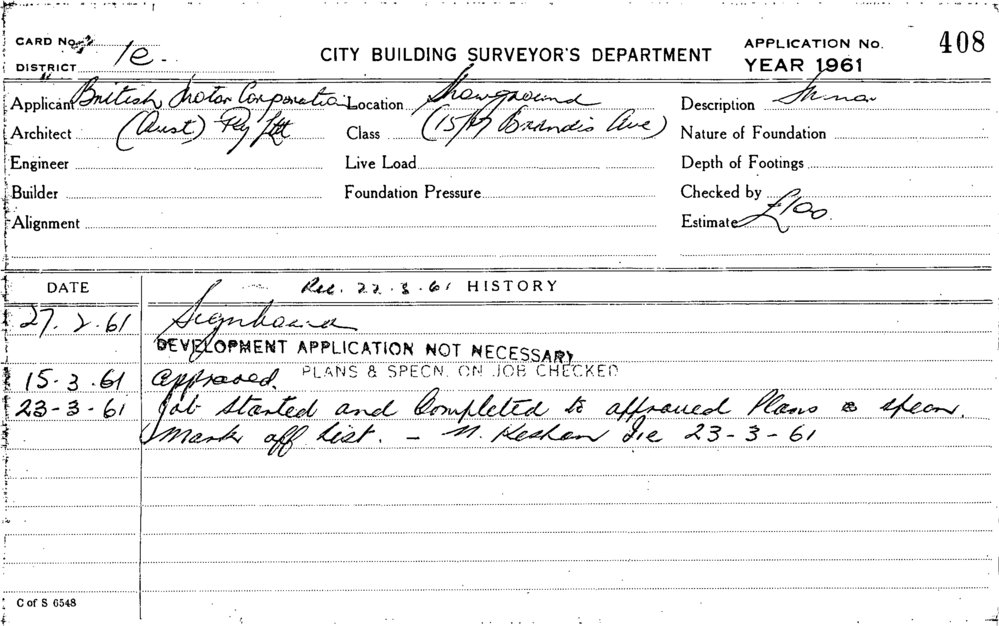 CARD No.
DISTRICT 1e.
CITY BUILDING SURVEYOR'S DEPARTMENT
APPLICATION No. 408
YEAR 1961
Applicant British Motor Corporation Location Showground Description Minor
Architect (Aust) Pty Ltt Class (15/17 Brandis Ave) Nature of Foundation
Engineer Live Load Depth of Footings
Builder Foundation Pressure Checked by
Alignment Estimate £100
DATE Rec. 22.3.61 HISTORY
27.2.61 Signboard
DEVELOPMENT APPLICATION NOT NECESSARY
15-3.61 approved. PLANS & SPECN. ON JOB CHECKED
23-3-61 Job started and Completed to approved Plans & specn.
Mark off List. - 23-3-61
C of S 6548